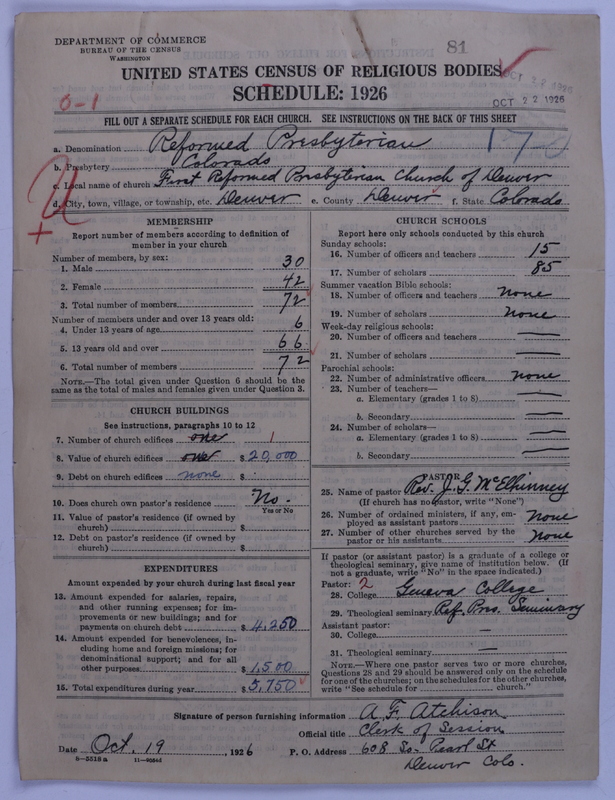 DEPARTMENT OF COMMERCE
BUREAU OF THE CENSUS
WASHINGTON
81
UNITED STATES CENSUS OF RELIGIOUS BODIES
SCHEDULE: 1926
OCT 22 1926
0-1
FILL OUT A SEPARATE SCHEDULE FOR EACH CHURCH. SEE INSTRUCTIONS ON THE BACK OF THIS SHEET
17-0
a. Denomination Reformed Presbyterian
b. Presbytery Colorado
c. Local name of church First Reformed Presbyterian Church of Denver
d. City, town, village, or township, etc. Denver e. County Denver f. State Colorado
MEMBERSHIP
Report number of members according to definition of
member in your church
Number of members, by sex:
1. Male 30
2. Female 42
3. Total number of members 72
Number of members under and over 13 years old:
4. Under 13 years of age 6
5. 13 years old and over 66
6. Total number of members 72
NOTE.—The total given under Question 6 should be
same as the total of males and females given under Question 3.
CHURCH BUILDINGS
See instructions, paragraphs 10 to 12
7. Number of church edifices one 1
8. Value of church edifices one $ 20,000
9. Debt on church edifices none $
10. Does church own pastor's residence No.
Yes or No
11. Value of pastor's residence (if owned by
church) $
12. Debt on pastor's residence (if owned by
church) $
EXPENDITURES
Amount expended by your church during last fiscal year
13. Amount expended for salaries, repairs,
and other running expenses; for im-
provements or new buildings; and for
payments on church debt $ 4,250
14. Amount expended for benevolences, in-
cluding home and foreign missions; for
denominational support; and for all
other purposes $ 1,500
15. Total expenditures during year $ 5,750
CHURCH SCHOOLS
Report here only schools conducted by this church
Sunday schools:
16. Number of officers and teachers 15
17. Number of scholars 85
Summer vacation Bible schools:
18. Number of officers and teachers none
19. Number of scholars none
Week-day religious schools:
20. Number of officers and teachers —
21. Number of scholars —
Parochial schools:
22. Number of administrative officers none
23. Number of teachers—
a. Elementary (grades 1 to 8) —
b. Secondary —
24. Number of scholars—
a. Elementary (grades 1 to 8) —
b. Secondary —
PASTOR
25. Name of pastor Rev. J. G. McElhinney
(If church has no pastor, write "None")
26. Number of ordained ministers, if any, em-
ployed as assistant pastors none
27. Number of other churches served by the
pastor or his assistants none
If pastor (or assistant pastor) is a graduate of a college or
theological seminary, give name of institution below. (If
not a graduate, write "No" in the space indicated.)
Pastor: 2
28. College Geneva College
29. Theological seminary Ref. Pres. Seminary
Assistant pastor:
30. College —
31. Theological seminary —
NOTE.—Where one pastor serves two or more churches,
Questions 28 and 29 should be answered only on the schedule
for one of the churches; on the schedules for the other churches,
write "See schedule for church."
Signature of person furnishing information A. F. Atchison
Official title Clerk of Session
Date Oct. 19, 1926 P. O. Address 608 So. Pearl St
Denver Colo.
8-5518a 11-9056d